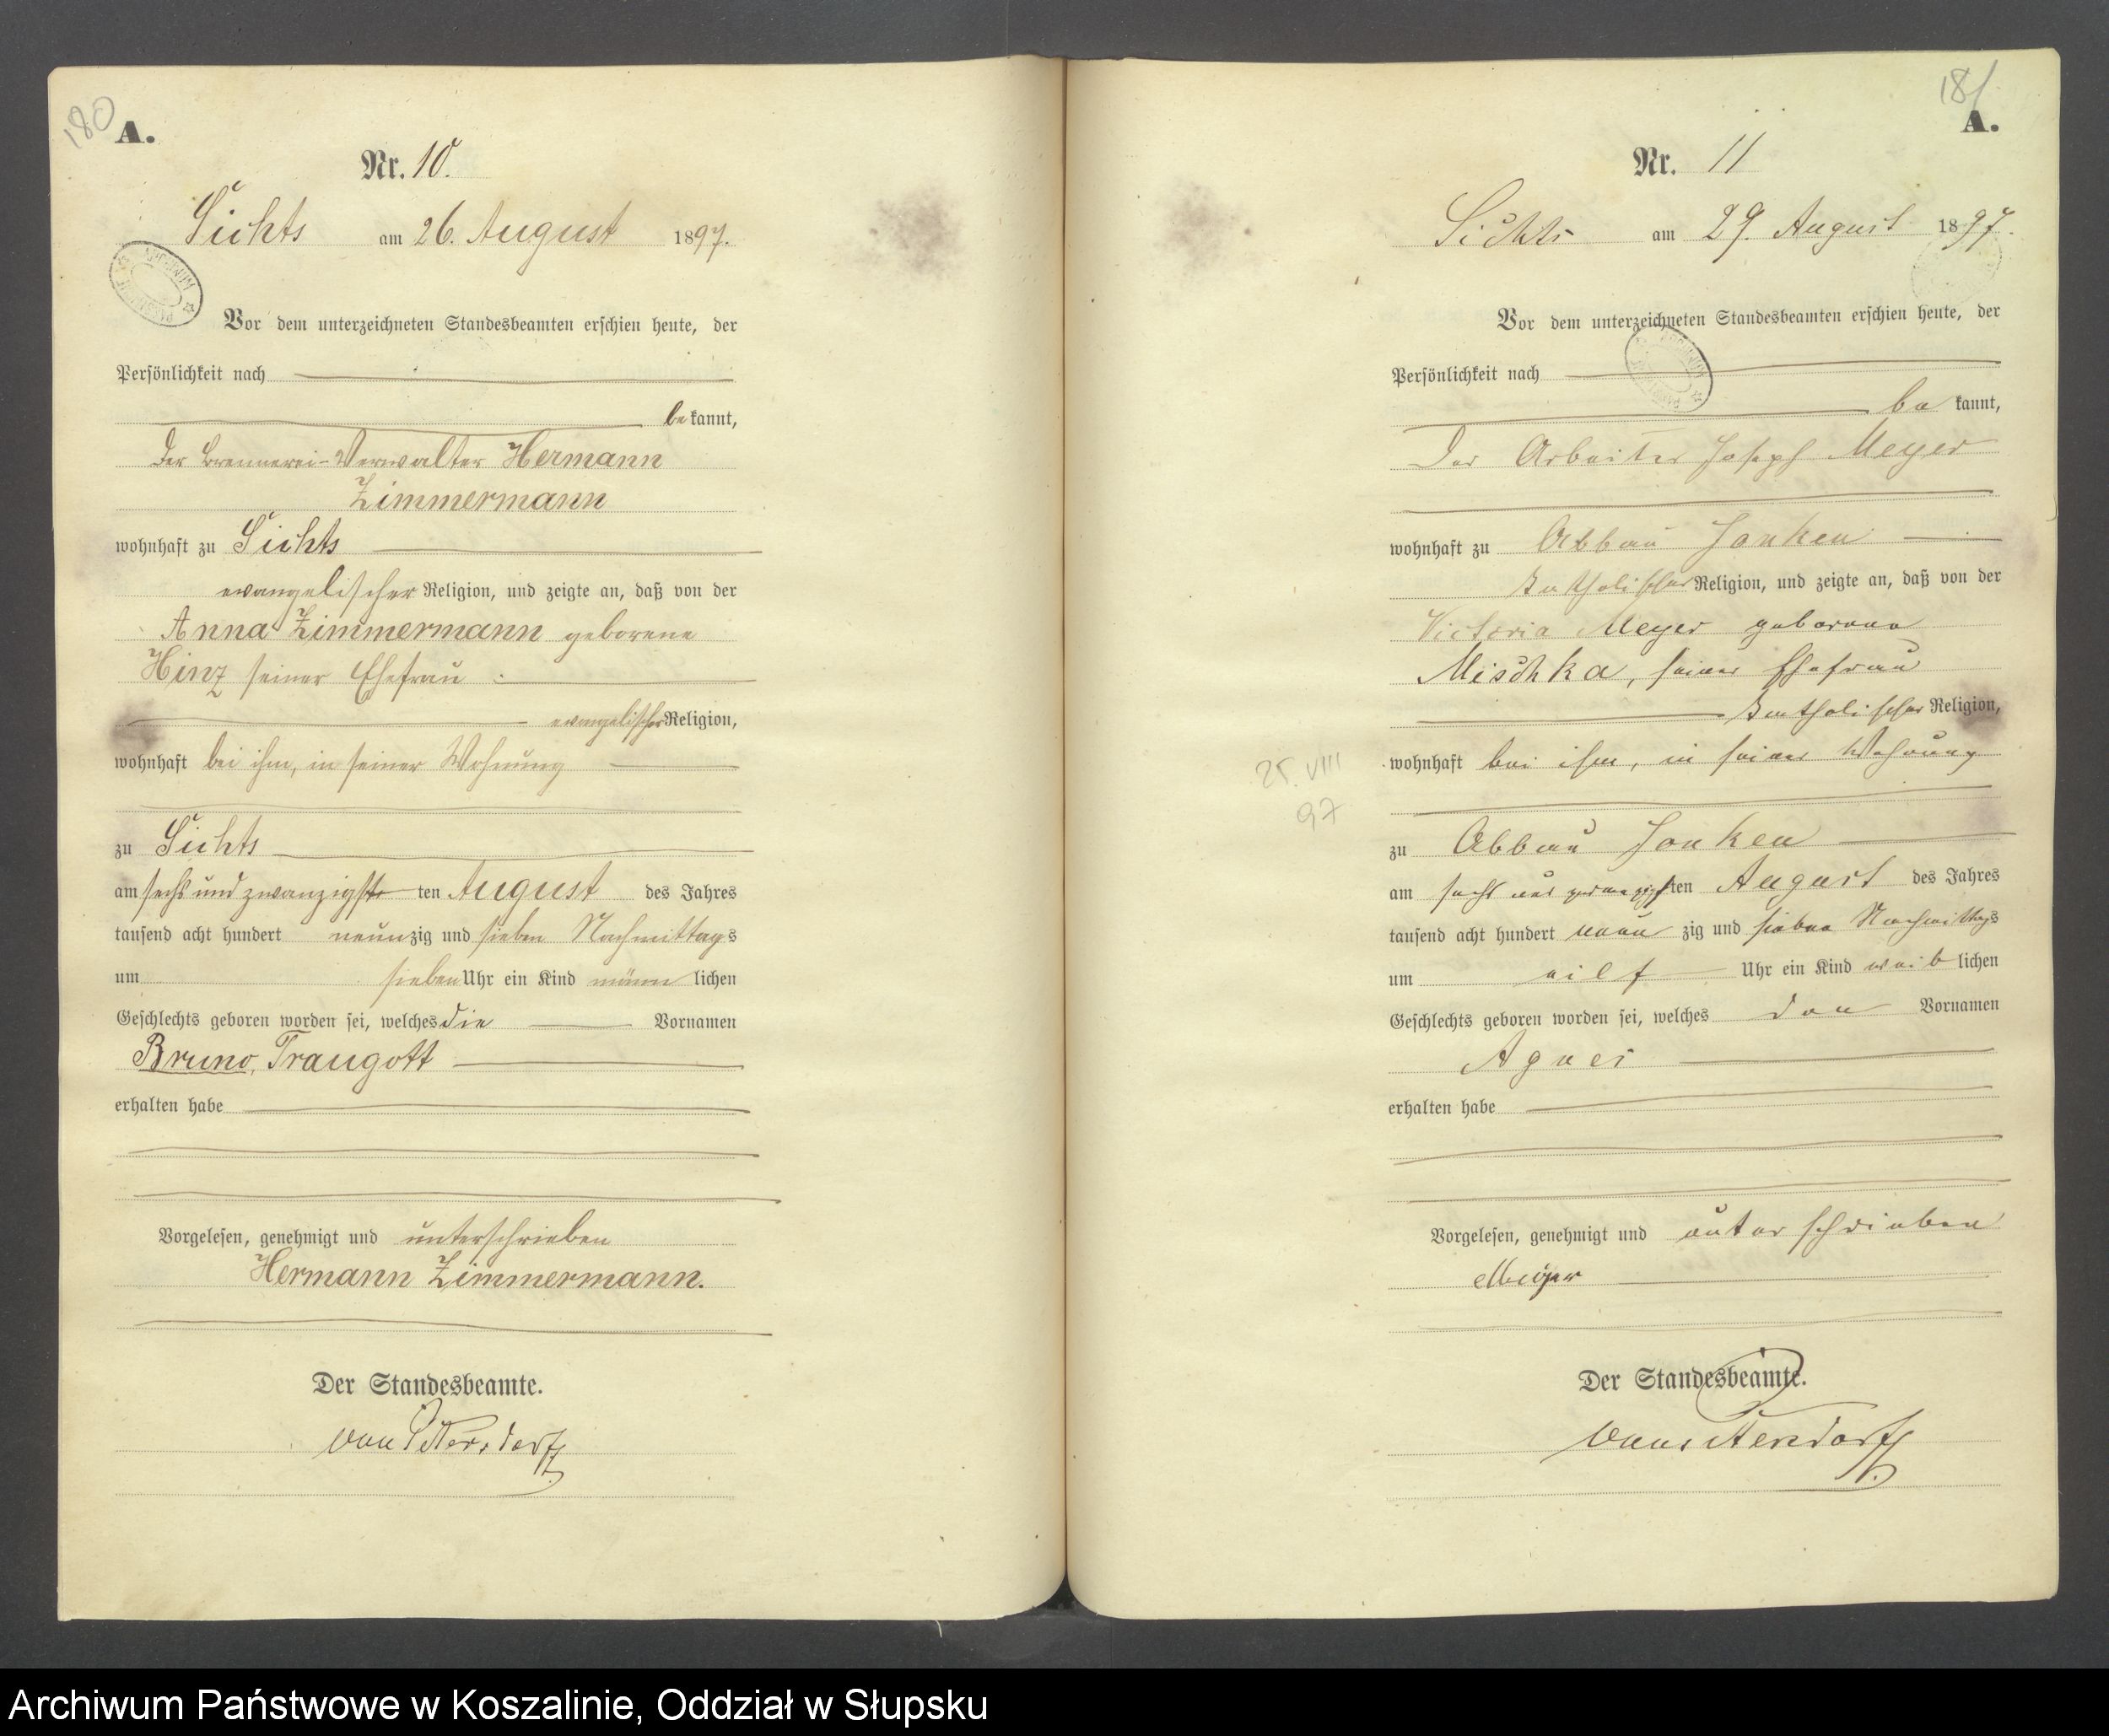 180
A.
Nr. 10.
Sichts am 26. August 1897.
Vor dem unterzeichneten Standesbeamten erschien heute, der
Persönlichkeit nach
bekannt,
der Brennerei-Verwalter Hermann
Zimmermann
wohnhaft zu Sichts
evangelischer Religion, und zeigte an, daß von der
Anna Zimmermann geborene
Hinz seiner Ehefrau
evangelischer Religion,
wohnhaft bei ihm, in seiner Wohnung
zu Sichts
am sechs und zwanzigsten August des Jahres
tausend acht hundert neunzig und sieben Nachmittags
um sieben Uhr ein Kind männlichen
Geschlechts geboren worden sei, welches die Vornamen
Bruno, Traugott
erhalten habe
Vorgelesen, genehmigt und unterschrieben
Hermann Zimmermann.
Der Standesbeamte.
181
A.
Nr. 11
Sichts am 29. August 1897.
Vor dem unterzeichneten Standesbeamten erschien heute, der
Persönlichkeit nach
bekannt,
Der Arbeiter Joseph Meyer
wohnhaft zu Abbau Janken
katholischer Religion, und zeigte an, daß von der
Victoria Meyer geborene
Mischka, seiner Ehefrau
katholischer Religion,
wohnhaft bei ihm, in seiner Wohnung
25. VIII
97
zu Abbau Janken
am sechs und zwanzigsten August des Jahres
tausend acht hundert neunzig und sieben Nachmittags
um eilf Uhr ein Kind weiblichen
Geschlechts geboren worden sei, welches den Vornamen
Agnes
erhalten habe
Vorgelesen, genehmigt und unterschrieben
Meÿer
Der Standesbeamte.
Archiwum Państwowe w Koszalinie, Oddział w Słupsku